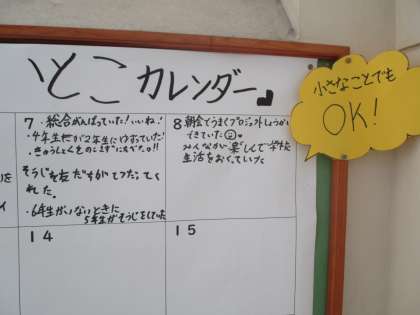 いとこカレンダー
小さなことでも
OK!
7 ・総合がんばっていた!いいね!
・4年生が2年生にゆずっていた!
・きゅうしょくをのこさずにたべた!!
そうじを友だちがてつだってくれた。
・6年生がいないときに
5年生がそうじをしていた
8 朝会でうまくプロジェクトしょうかい
できていた
みんなが楽しんで学校
生活をおくっていた
14
15